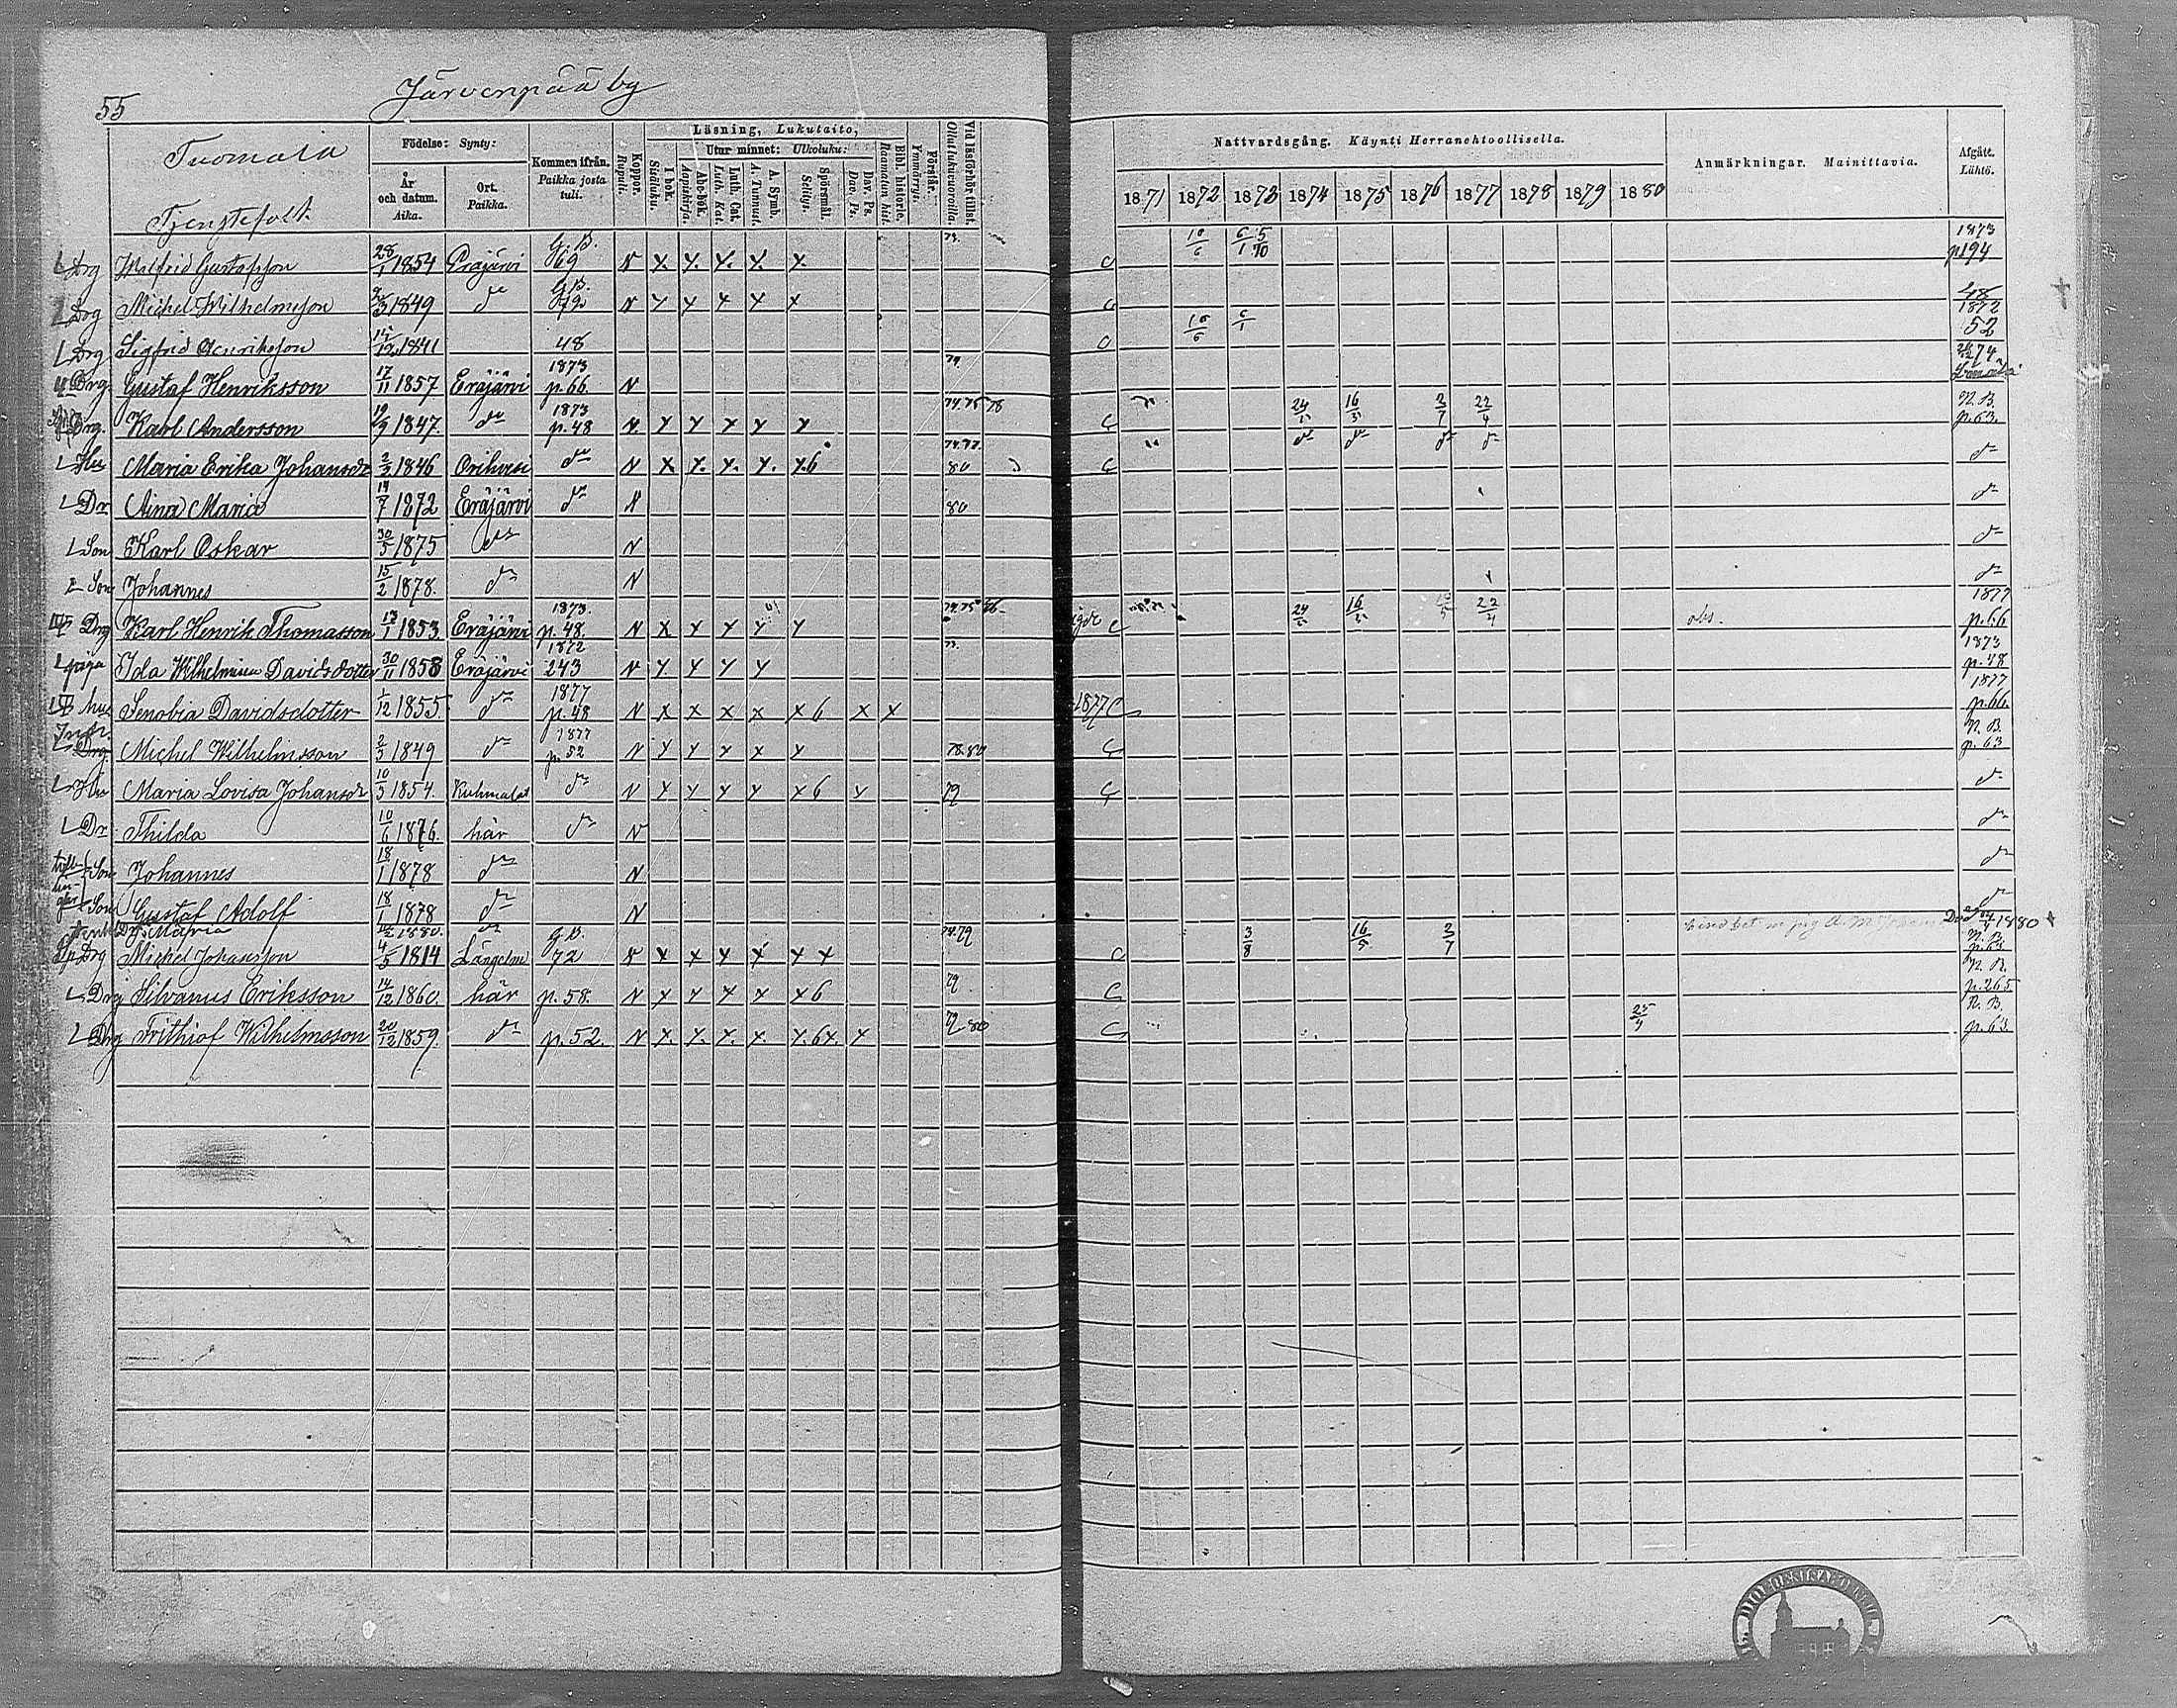 55
Järvenpää by
Tuomala
Tjenstefolk
Födelse: Synty:
År och datum. Aika.
Ort. Paikka.
Kommen ifrån. Paikka josta tuli.
Koppor. Rupuli.
Läsning, Lukutaito,
I bok. Sisäluku.
Utur minnet: Ulkoluku:
Abc-bok. Aapiskirja.
Luth. Cat. Luth. Kat.
A. Symb. A. Tunnust.
Spörsmål. Selitys.
Dav. Ps. Dav. Ps.
Bibl. historie. Raamatun hist.
Förstår. Ymmärrys.
Vid läsförhör tillst. Ollut lukuvuoroilla.
Nattvardsgång. Käynti Herranehtoollisella.
1871 1872 1873 1874 1875 1876 1877 1878 1879 1880
Anmärkningar. Mainittavia.
Afgått. Lähtö.
Drg Wilfrid Gustafsson 28/1 1854 Eräjärvi G.B. 69 N x x. x. x. x. 73. C 10/6 6/1 5/10 1873 p 194
Drg Michel Wilhelmsson 2/3 1849 do G.B. 72 N x x x x x C 48 1872
Drg Sigfrid Henriksson 1841 48 C 10/6 6/1 52
Drg Gustaf Henriksson 17/11 1857 Eräjärvi 1873 p. 66. N 74
Drg. Karl Andersson 19/9 1847. do 1873 p. 48 N. x x x x x 74. 75 78 C 24/5 16/5 2/7 22/4 N. B. p. 63.
Hu Maria Erika Johansdr 2/3 1846 Orihvesi do N x x. x. x. x.6 74. 77. 80 C do do do do do
Dr Aina Maria 14/7 1872 Eräjärvi do N 80 do
Son Karl Oskar 30/5 1875 do N do
Son Johannes 15/2 1878. do N do
Drg Karl Henrik Thomasson 13/1 1853. Eräjärvi 1873. p. 48. N x x x x x 74. 75 C 24/5 16/5 22/4 obs. 1877 p. 66
piga Ida Wilhelmina Davidsdotter 30/11 1858 Eräjärvi 1872 243 N x x x x 73. 1873 p. 48
hu Senobia Davidsdotter 1/12 1855. do 1877 p. 48 N x x x x x 6 x x 1877 C 1877 p. 66.
Drg. Michel Wilhelmsson 2/3 1849 do 1877 p. 52 N x x x x x 78. 80 C N. B. p. 63
Hu Maria Lovisa Johansdr 10/5 1854. Kuhmalat do N x x x x x 6 x 79 C do
Dr Thilda 10/6 1876. här do N do
Son Johannes 18/1 1878 do N do
Son Gustaf Adolf 18/1 1878 do N do
Dr. Maria 1880. do 1880
Drg Michel Johansson 4/5 1814 Längelm G.B. 72 N x x x x x x 74. 79 C 3/8 16/5 2/7 N. B. p. 63
Drg Silvanus Eriksson 14/12 1860. här p. 58. N x x x x x 6 79 C N. B. p. 265
Drg Frithiof Wilhelmsson 20/12 1859. do p. 52. N x. x. x. x. x. 6x. x 79 80 C 25/4 N. B. p. 63